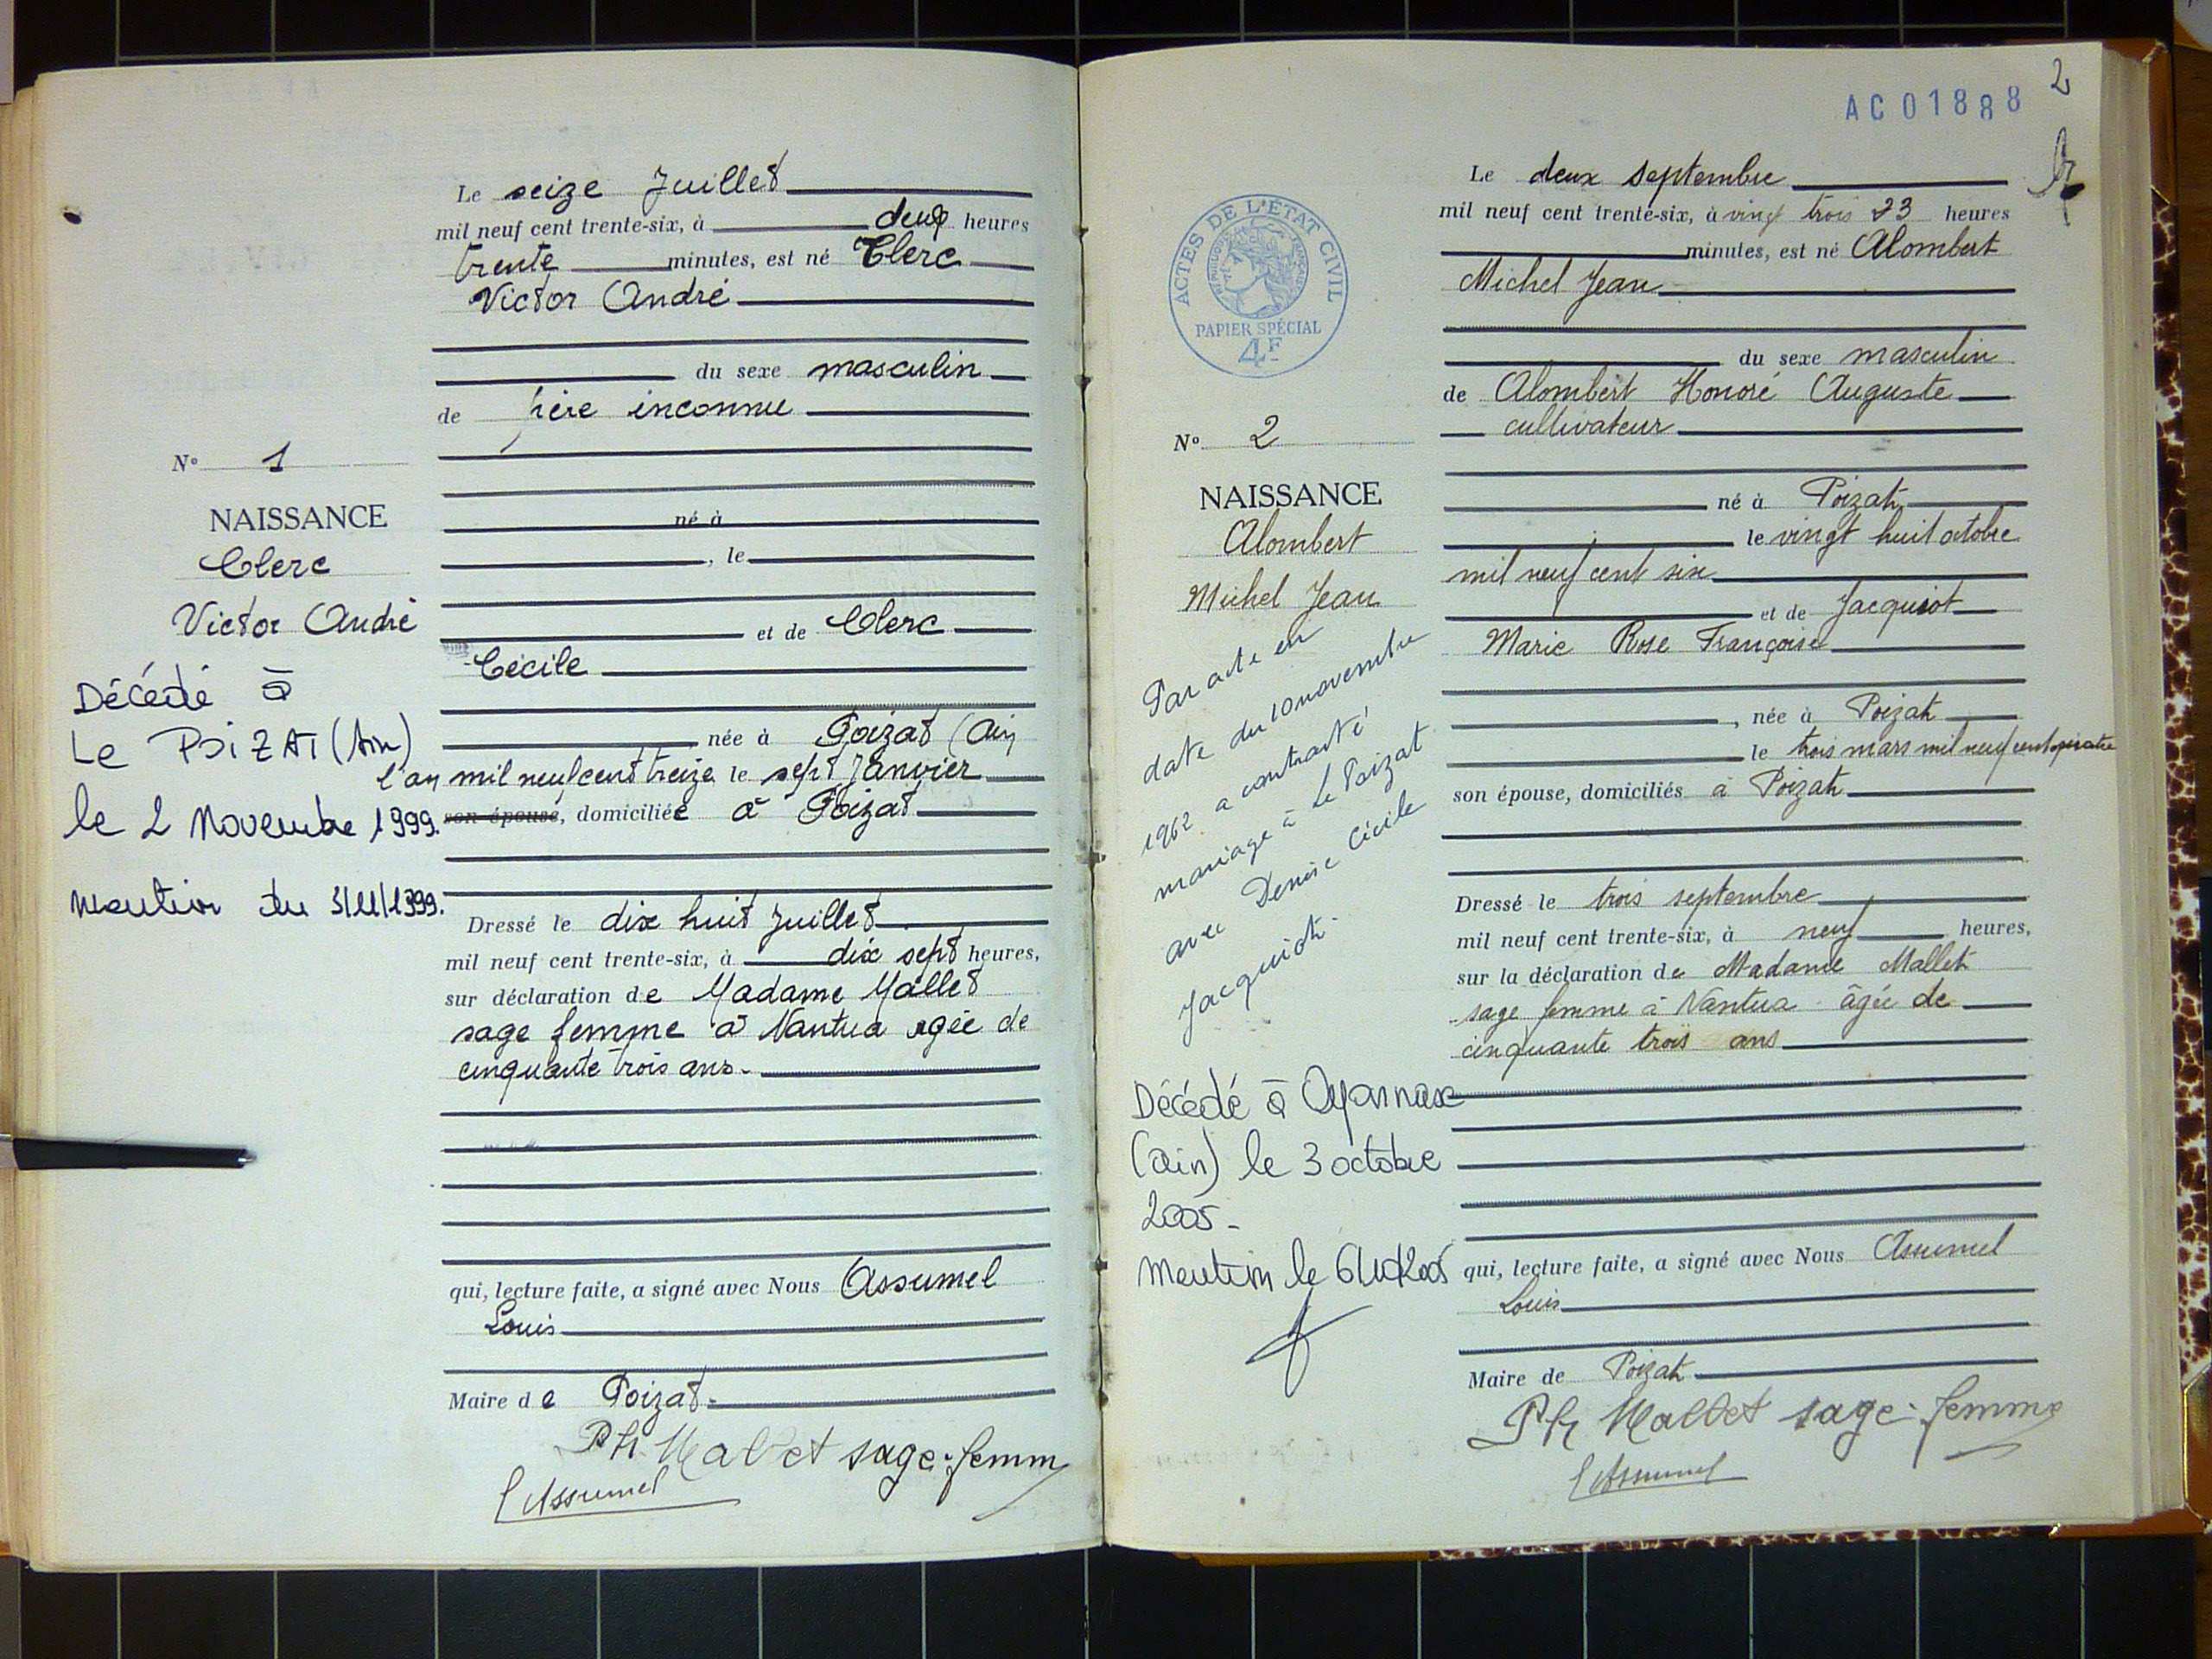 Le seize Juillet
mil neuf cent trente-six, à deux heures
trente minutes, est né Clerc
Victor André
du sexe masculin
de père inconnu
N° 1
NAISSANCE
Clerc
Victor André
Décédé à
Le POIZAT (Ain)
le 2 Novembre 1999.
Mention du 3/11/1999.
né à
, le
et de Clerc
Cécile
née à Poizat (Ain)
l'an mil neuf cent treize le sept Janvier
son épouse, domiciliée à Poizat
Dressé le dix huit Juillet
mil neuf cent trente-six, à dix sept heures,
sur déclaration de Madame Mallet
sage femme à Nantua agée de
cinquante trois ans.
qui, lecture faite, a signé avec Nous Assumel
Louis
Maire de Poizat.
Ph Mallet sage-femm
L Assumel
2
AC01888
ACTES DE L'ÉTAT CIVIL
PAPIER SPÉCIAL
4F
Le deux septembre
mil neuf cent trente-six, à vingt trois 23 heures
minutes, est né Alombert
Michel Jean
du sexe masculin
de Alombert Honoré Auguste
cultivateur
N° 2
NAISSANCE
Alombert
Michel Jean
Par acte en
date du 10 novembre
1962 a contracté
mariage à Le Poizat
avec Denise Cécile
Jacquiot.
Décédé à Oyonnax
(Ain) le 3 octobre
2005.
Mention le 6/10/2005
né à Poizat
le vingt huit octobre
mil neuf cent six
et de Jacquiot
Marie Rose Françoise
, née à Poizat
le trois mars mil neuf cent quatre
son épouse, domiciliés à Poizat
Dressé le trois septembre
mil neuf cent trente-six, à neuf heures,
sur la déclaration de Madame Mallet
sage femme à Nantua âgée de
cinquante trois ans
qui, lecture faite, a signé avec Nous Assumel
Louis
Maire de Poizat
Ph Mallet sage-femme
L Assumel